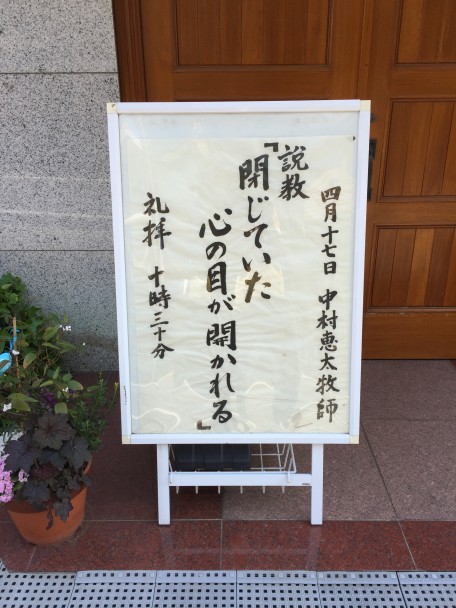 四月十七日 中村恵太牧師
説教
『閉じていた
心の目が開かれる』
礼拝 十時三十分